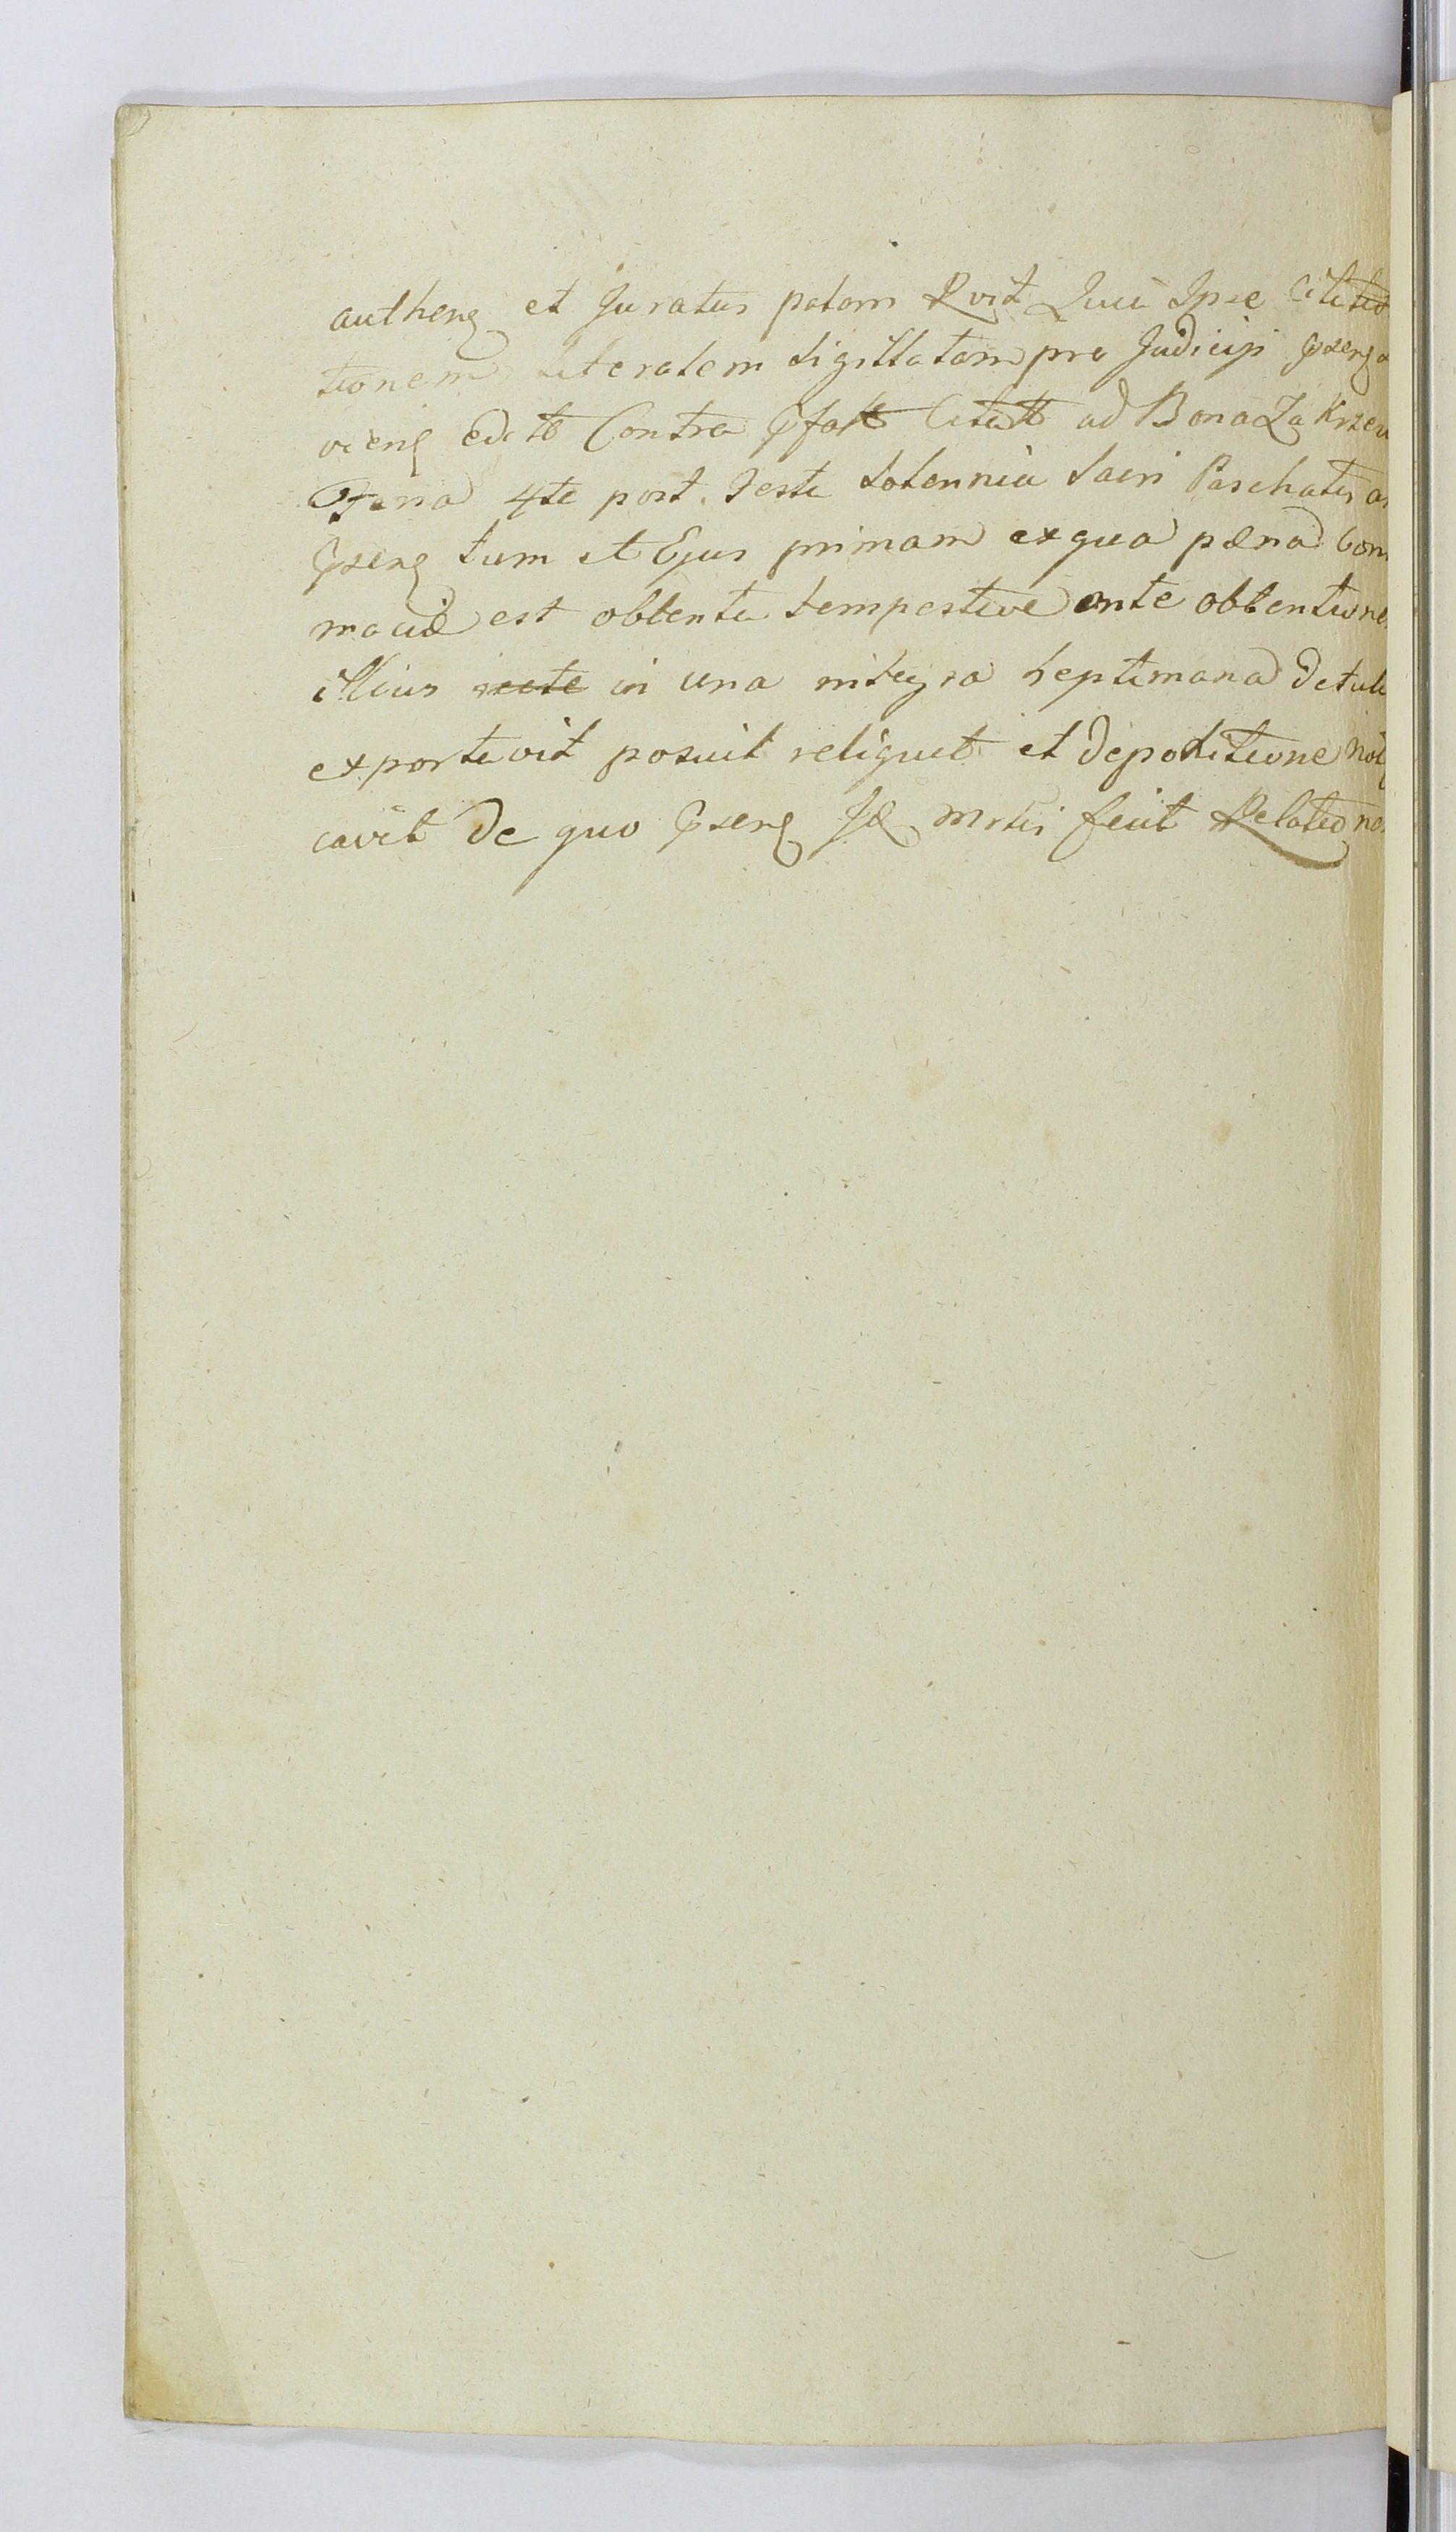 autheng et Juratus palam Rvit Quii Ipse Citatio
tionem Literalem sigillatam pro Judicijs Pseng
vieng Editt Contra Pfatt Citatt ad Bona Zakrzew
Feria 4te post Festa Solennia Sacri Paschatis
Pseng tum et Ejus primam ex qua pæna Con
maciæ est obtenta tempestive ante obtentione
illius recte in una integra Septimana Detuli
exportavit posuit reliquit et depositione noti
cavit de quo Pseng Jæ Mrtri fecit Relatione